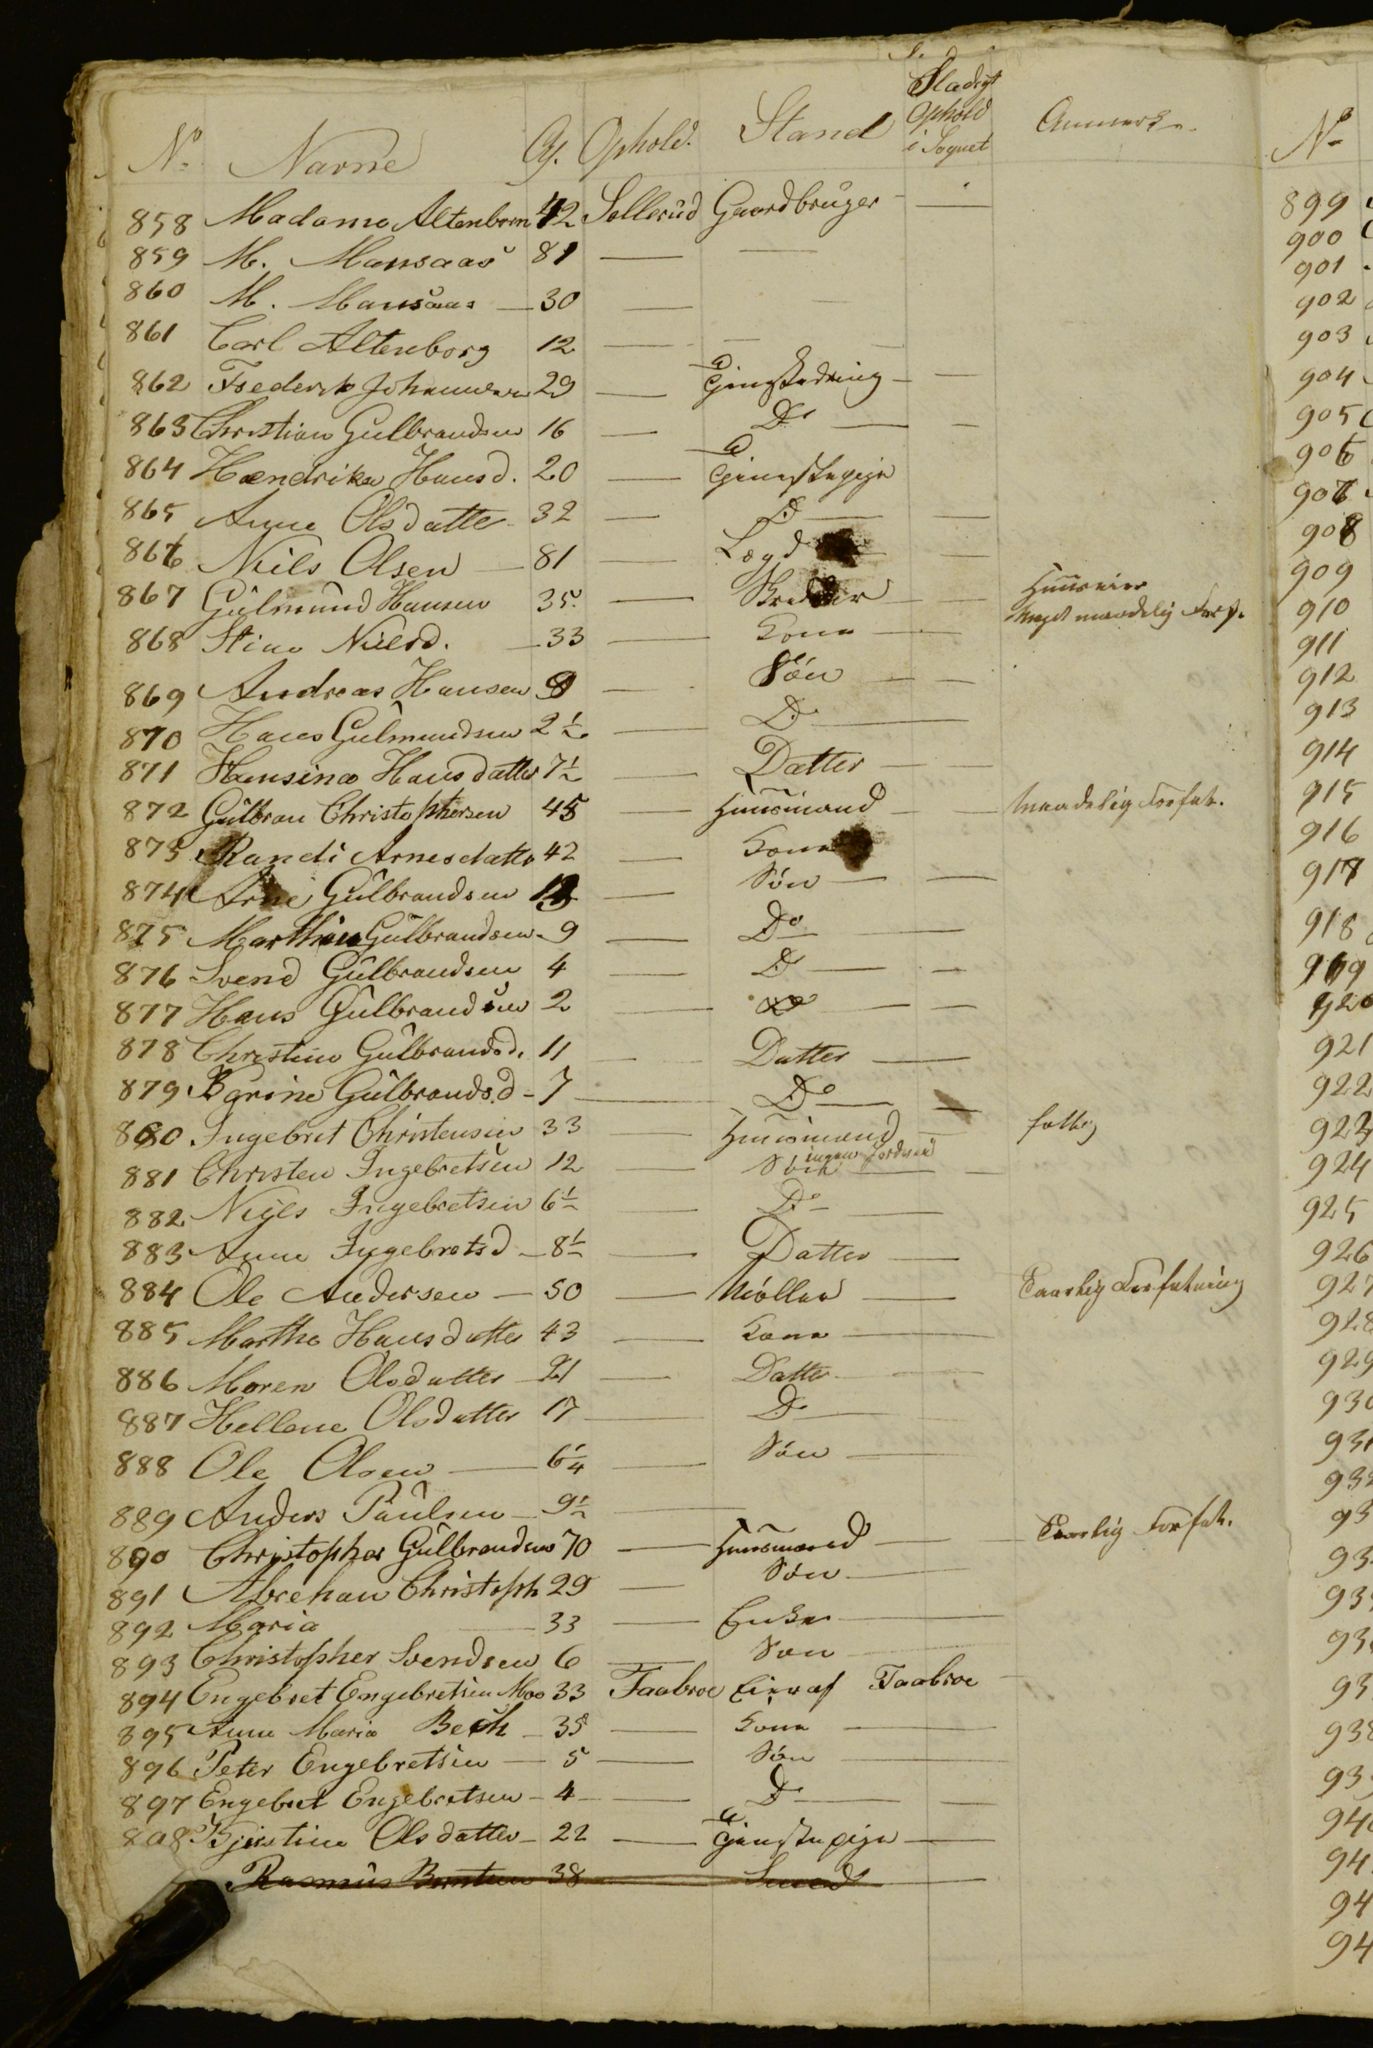 No Navne Al. Ophold. Stand Stadigt Ophold i Sognet Anmerk.
858 Madame Altenborn 42 Sollerud Gaardbruger —
859 M. Mansaas 81 — —
860 M. Mansaas — 30 —
861 Carl Altenborg 12 — — —
862 Frederik Johannesen 29 — Tjenstedreng — —
863 Christian Gulbrandsen 16 — Do — —
864 Hendrika Hansd. 20 — Tjenstepige
865 Anne Olsdatter 32 — D. — —
866 Niels Olsen — 81 — Lægd — —
867 Gulmund Hansen 35. — Skredder — — Huuseier
meget maadelig Forf.
868 Stine Nielsd. — 33 — Kone — —
869 Andreas Hansen 9 — Søn — —
870 Hans Gulmundsen 2½ — D. — —
871 Hansine Hansdatter 7½ — Datter — —
872 Gulbran Christophersen 45 — Huusmand — — Maadelig Forfat.
873 Randi Arnesdatter 42 — Kone
874 Arne Gulbrandsen 13 — Søn — —
875 Marthin Gulbrandsen - 9 — Do —
876 Svend Gulbrandsen 4 — D. — —
877 Hans Gulbrandsen 2 — Do — —
878 Christine Gulbrandsd. 11 — Datter —
879 Karine Gulbrands.d - 7 — Do — —
880 Ingebret Christensen 33 — Huusmand — fattig
ingen Jordvei
881 Christen Ingebretsen 12 — Søn — —
882 Niels Ingebretsen 6½ — D. — —
883 Anne Ingebretsd — 8½ — Datter —
884 Ole Andersen — 50 — Møller — — Daarlig Forfatning
885 Marthe Hansdatter 43 — Kone —
886 Maren Olsdatter — 21 — Datter — —
887 Hellene Olsdatter 17 — D. — —
888 Ole Olsen — 6¼ — Søn — —
889 Anders Paulsen — 9½ —
890 Christopher Gulbrandsen 70 — Huusmand — Daarlig Forfat.
891 Abreham Christoph 29 — Søn —
892 Maria — 33 — Enke —
893 Christopher Svendsen 6 — Søn —
894 Engebret Engebretsen Moe 33 Faabroe Eier af Faabroe
895 Anne Maria Bech — 35 — Kone —
896 Peter Engebretsen — 5 — Søn —
897 Engebret Engebretsen — 4 — D. — —
898 Kjirstine Olsdatter — 22 — Tjenstepige —
Rasmus Berntsen 38 — Smed —
No
899
900
901
902
903
904
905
906
907
908
909
910
911
912
913
914
915
916
917
918
919
920
921
922
923
924
925
926
927
928
929
930
931
932
93
93
93
93
93
938
93
940
94
94
94